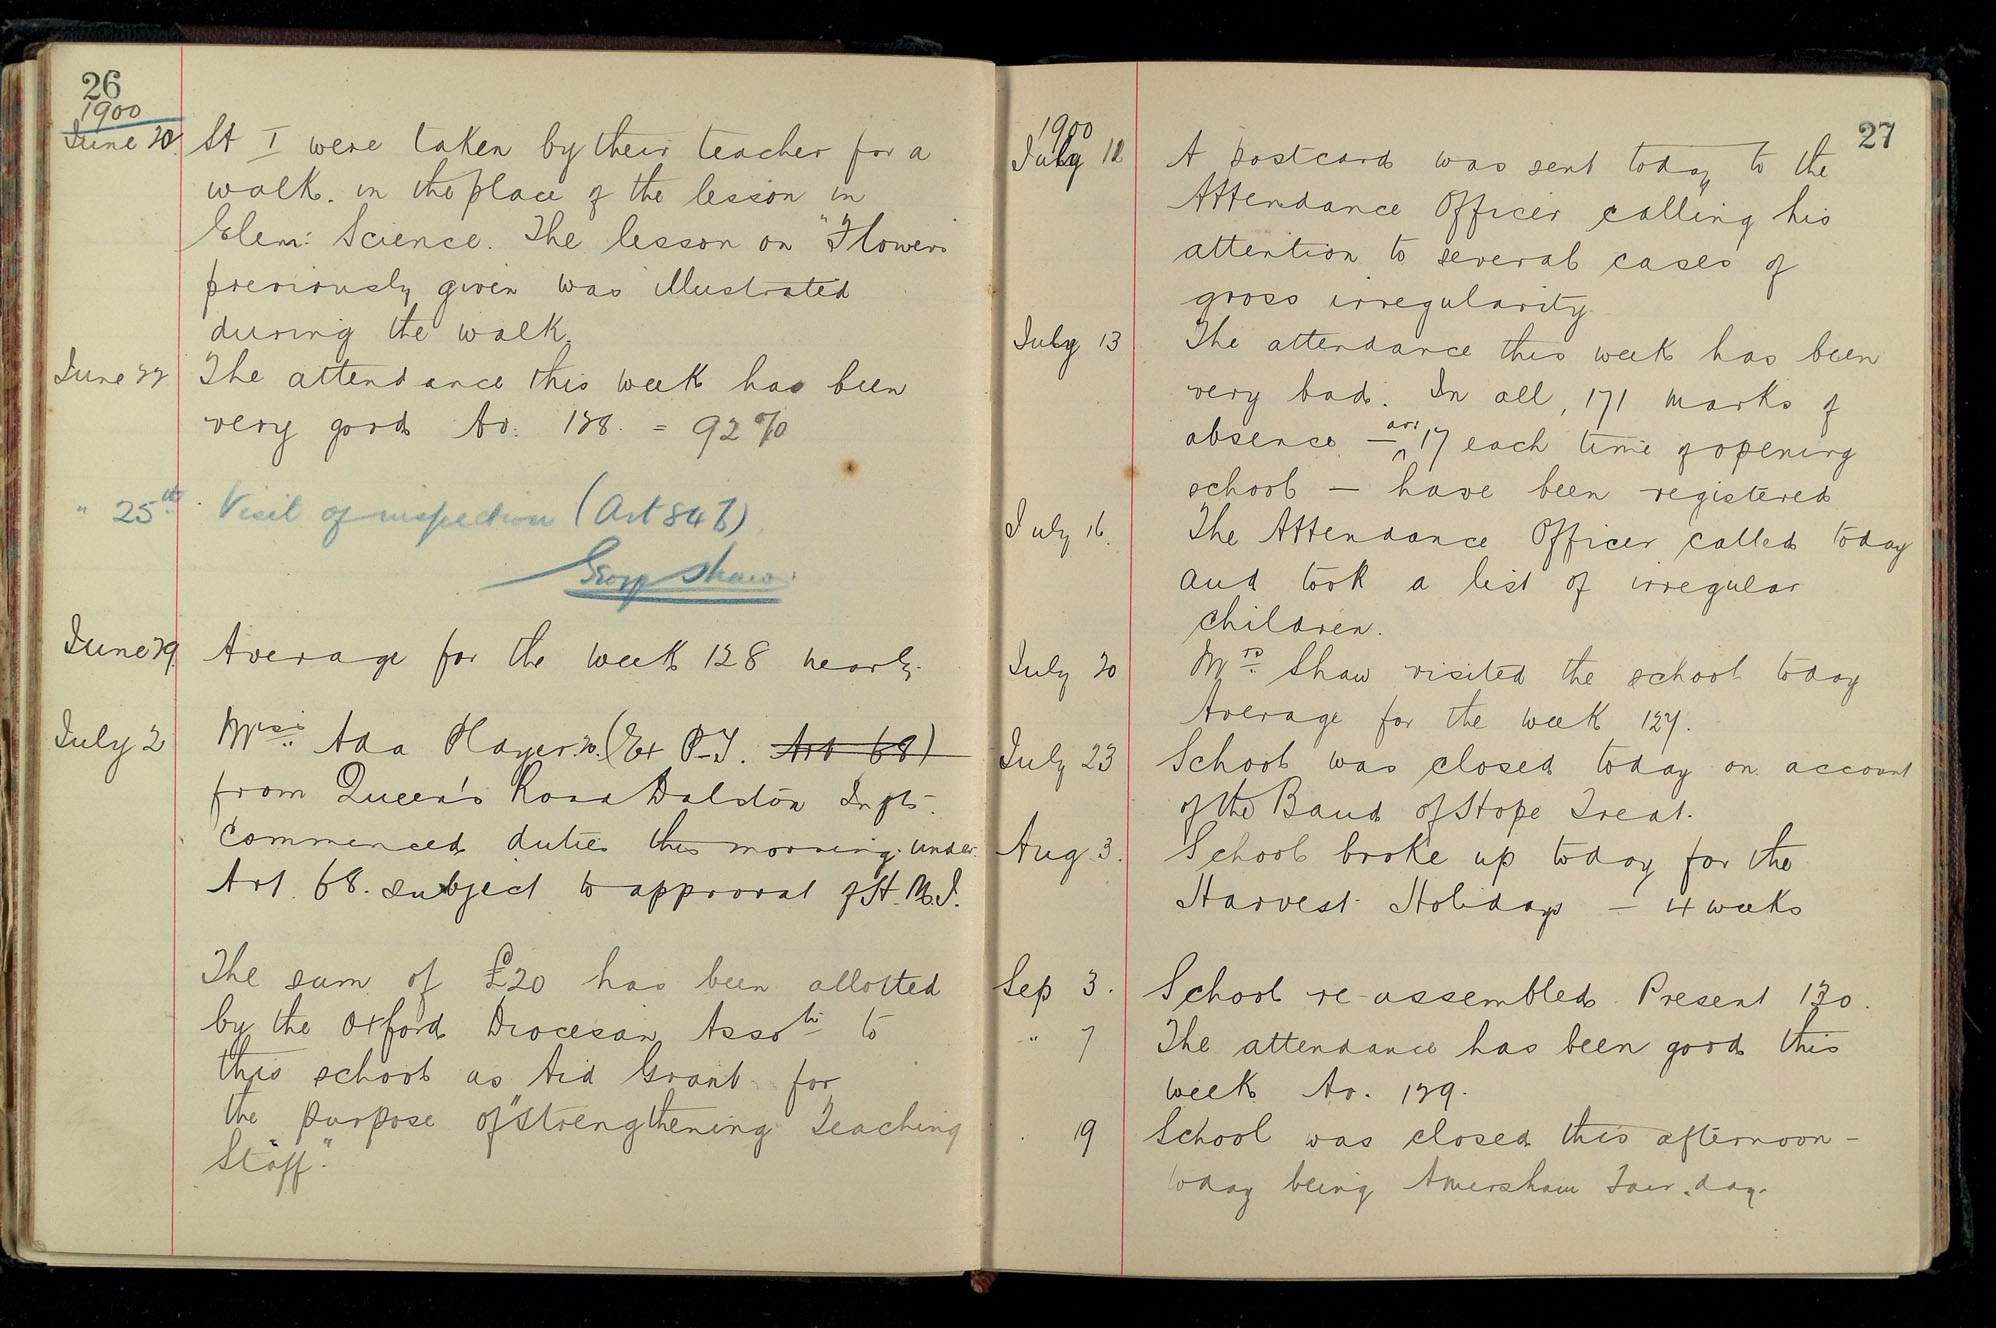 26
1900
June 20. St I were taken by their teacher for a
walk. in the place of the lesson in
Elem: Science. The lesson on "Flowers
previously given was illustrated
during the walk.
June 22 The attendance this week has been
very good Av: 128. = 92%
" 25th. Visit of inspection (Art 84 b)
George Shaw
June 29. Average for the week 128 nearly.
July 2 Miss Ada Player (Ex P.T. Art 68)
from Queen's Road Dalston Infts.
commenced duties this morning under
Art. 68. subject to approval of H.M.I.
The sum of £20 has been allotted
by the Oxford Diocesan Assotn to
this school as Aid Grant for
the purpose of "Strengthening Teaching
Staff".
27
1900
July 12 A postcard was sent today to the
Attendance Officer calling his
attention to several cases of
gross irregularity.
July 13 The attendance this week has been
very bad. In all, 171 marks of
absence – av: 17 each time of opening
school – have been registered
July 16. The Attendance Officer called today
and took a list of irregular
children.
July 20 Mrs. Shaw visited the school today
Average for the week 127.
July 23 School was closed today on account
of the Band of Hope Treat.
Aug 3. School broke up today for the
Harvest Holidays – 4 weeks
Sep 3. School re-assembled. Present 130.
" 7 The attendance has been good this
week Av. 129.
19 School was closed this afternoon –
today being Amersham Fair day.